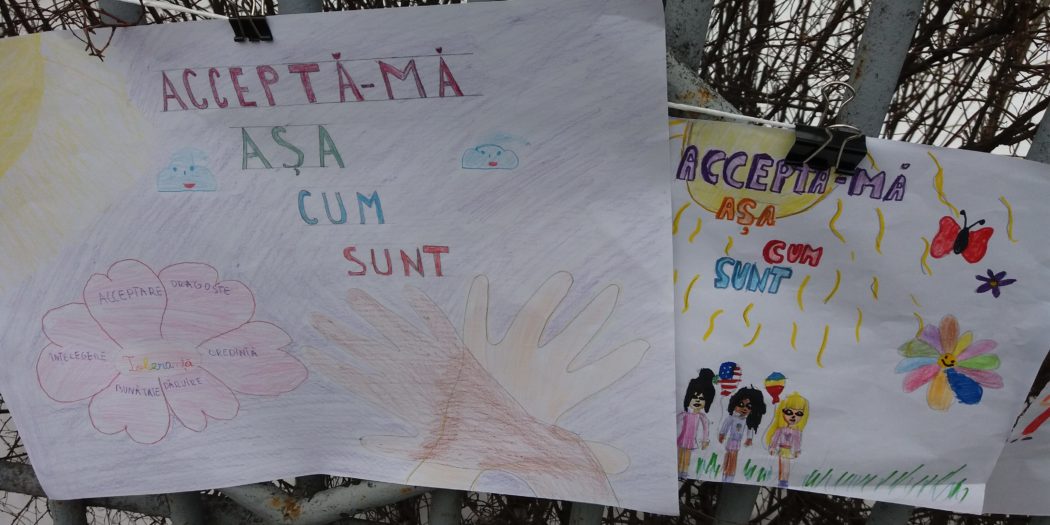 ACCEPTĂ-MĂ
AȘA
CUM
SUNT
ACCEPTARE
DRAGOSTE
INTELEGERE
Toleranță
CREDINȚĂ
BUNĂTATE
DĂRUIRE
ACCEPTĂ-MĂ
AȘA
CUM
SUNT